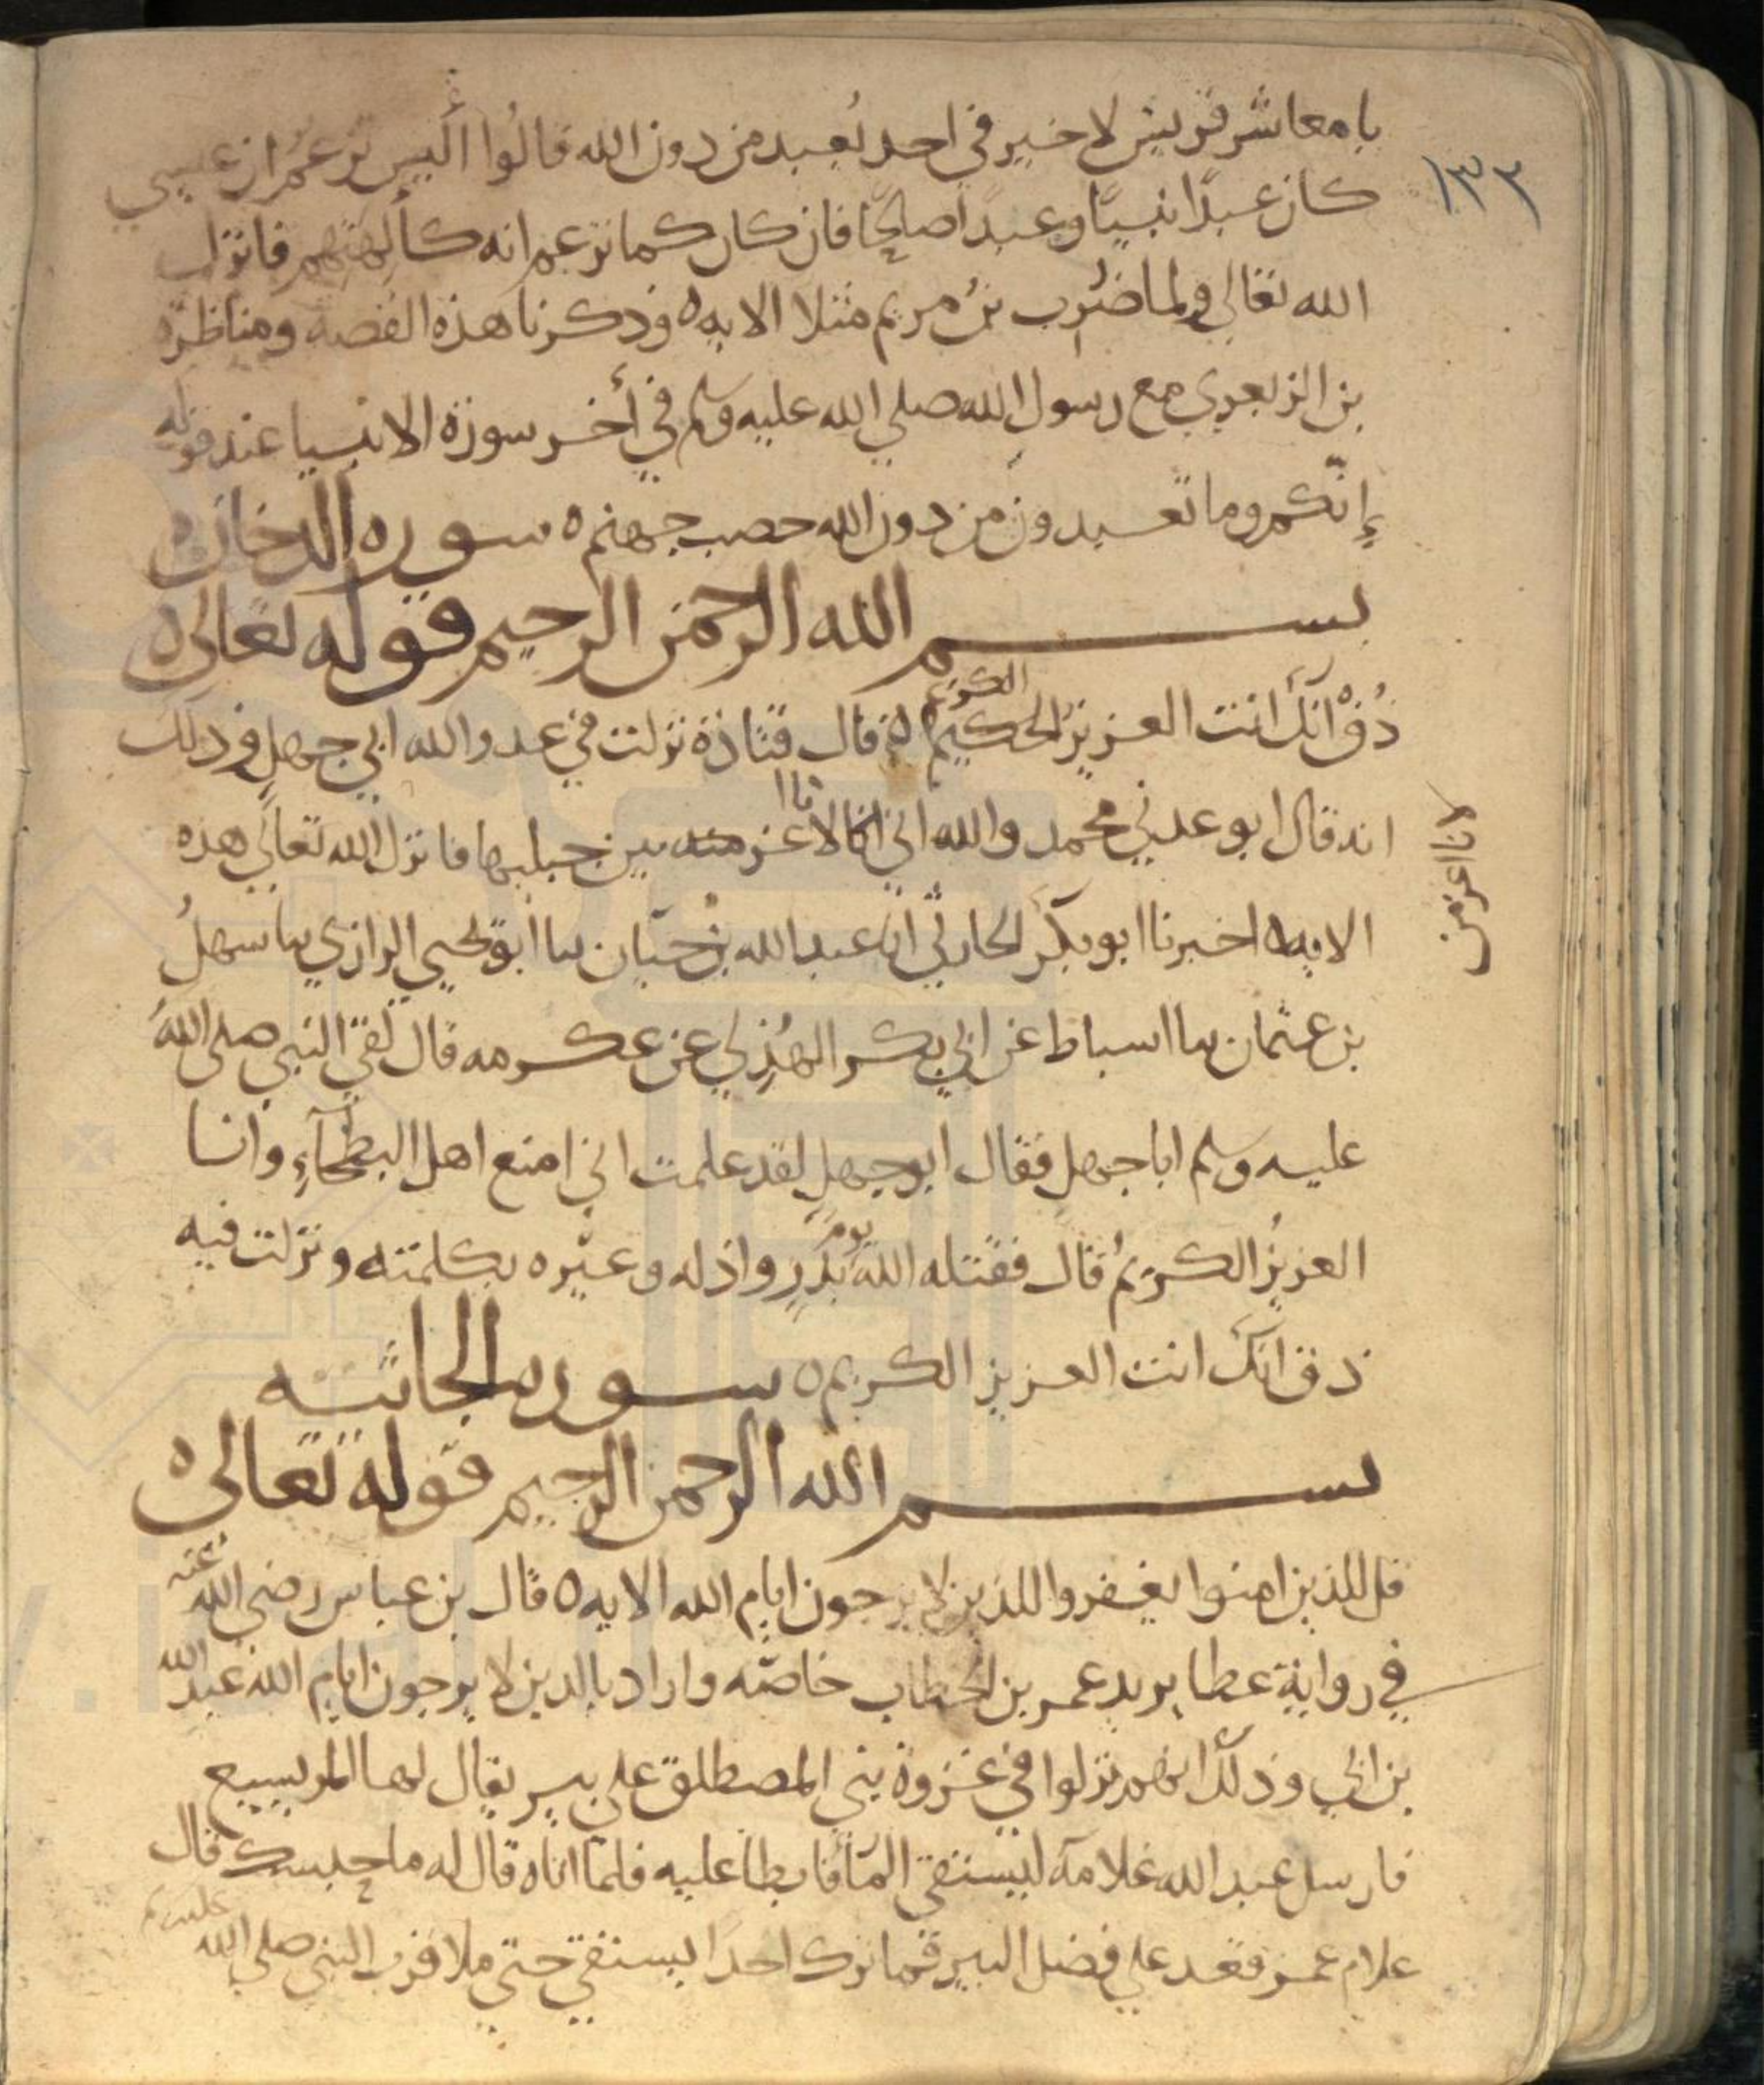 يا معاشر قريش لا خير في احد يُعبد من دون الله قالُوا اليس تزعُم ان عيسي
١٣٣
كان عبدًا نبيًا وعبدًا صالحًا فان كان كما تزعم انه كألهتهم فانزل
الله تعالي ولما ضُرب بنُ مريم مثلا الايه ه وذكرنا هذه القصة ومناظرة
بن الزبعري مع رسول الله صلي الله عليه وسلم في أخر سورة الانبيا عند قوله
إنّكم وما تعبدون من دون الله حصب جهنم ه سوره الدخان ه
بسم الله الرحمن الرحيم قوله تعالي ه
ذُقْ انك انت العزيز الحكيم الكريم ه قال قتادة نزلت في عدو الله ابي جهل وذلك
انه قال ايوعدني محمد والله اني انا لاعز من بين جبليها فانزل الله تعالي هذه
لانا اعز من
الايه ه اخبرنا ابو بكر الحارثي انا عبد الله بن حيّان سا ابو يحيي الرازي سا سهلُ
بن عثمان سا اسباط عن ابي بكر الهُذلي عن عكرمه قال لقي النبي صلي الله
عليه وسلم ابا جهل فقال ابو جهل لقد علمت اني امنع اهل البطحآءِ وانا
العزيزُ الكريمُ قال فقتله الله يوم بدرٍ واذله وعيّره بكلمته ونزلت فيه
ذق انك انت العزيز الكريم ه سوره الجاثيه
بسم الله الرحمن الرحيم قوله تعالي ه
قل للذين امنوا يغفروا للذين لا يرجون ايام الله الايه ه قال بن عباس رضي الله عنه
في رواية عطا يريد عمر بن الخطاب خاصّه واراد بالذين لا يرجون ايام الله عبد الله
بن ابي وذلك انهم نزلوا في غزوة بني المصطلق علي بير يقال لها المريسيع
فارسل عبد الله غلامه ليستقي المآ فابطا عليه فلمّا اتاه قال له ما حبسك قال
غلام عمر قعد علي فضل البير فما ترك احدًا يستقي حتي ملا قرب النبي صلي الله عليه وسلم